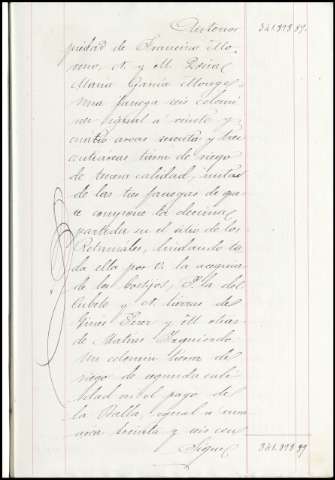 Anterior 341.898 89.
piedad de Francisco Mo-
reno, N. y M.
María García Monge
una fanega seis celemi-
nes igual á veinte y
cuatro areas sesenta y tres
centiareas tierra de riego
de tercera calidad, mitad
de las tres fanegas de que
se compone la decima
partida en el sitio de los
Retamales, lindando to-
da ella por O. la acequia
de los Cortijos, P. la del
Cubete y N. tierras de
y M. otras
de Matias Izquierdo.
Un celemin tierra de
riego de segunda cali-
dad en el pago de
la igual á una
area treinta y seis cen-
Sigue 341.898 89